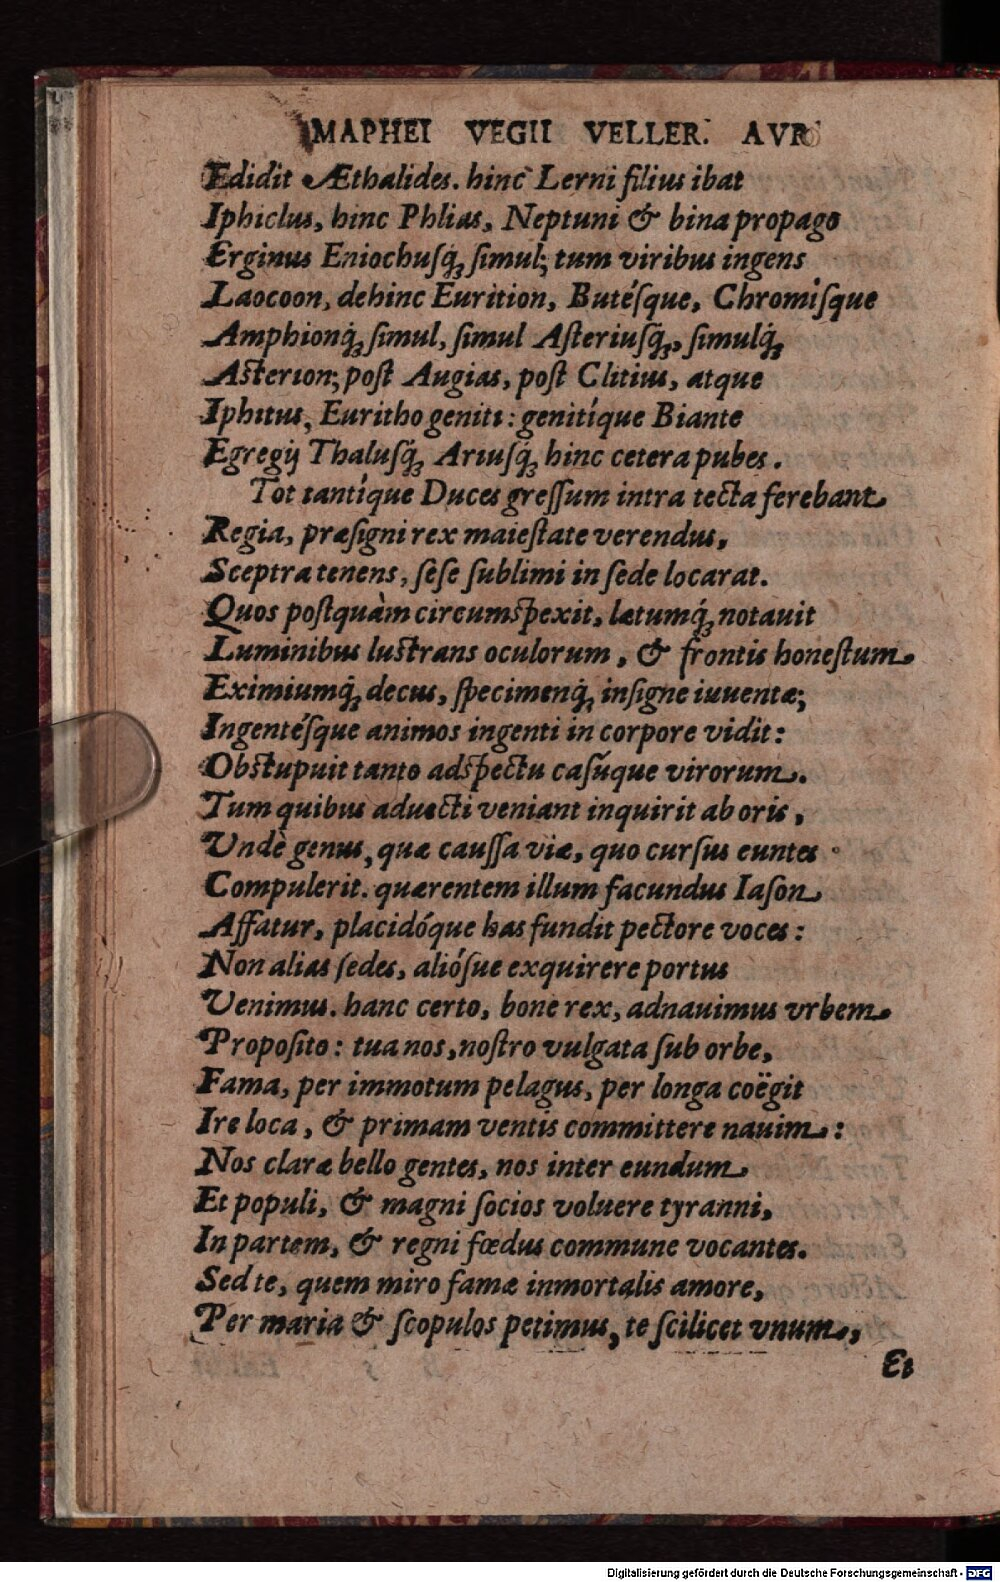 MAPHEI VEGII VELLER. AVR
Edidit Æthalides. hinc Lerni filius ibat
Iphiclus, hinc Phlias, Neptuni & bina propago
Erginus Eniochuſq́ꝫ ſimul; tum viribus ingens
Laocoon, dehinc Eurition, Butéſque, Chromiſque
Amphionq́ꝫ ſimul, ſimul Aſteriuſq́ꝫ, ſimulq́ꝫ
Aſterion; poſt Augias, poſt Clitius, atque
Iphitus, Euritho geniti: genitíque Biante
Egregij Thaluſq́ꝫ Ariuſq́ꝫ hinc cetera pubes.
Tot tantíque Duces greſſum intra tecta ferebant
Regia, præſigni rex maieſtate verendus,
Sceptra tenens, ſeſe ſublimi in ſede locarat.
Quos poſtquàm circumſpexit, lætumq́ꝫ notauit
Luminibus luſtrans oculorum, & frontis honeſtum
Eximiumq́ꝫ decus, ſpecimenq́ꝫ inſigne iuuentæ;
Ingentéſque animos ingenti in corpore vidit:
Obſtupuit tanto adſpectu caſúque virorum.
Tum quibus aduecti veniant inquirit ab oris,
Vndè genus, quæ cauſſa viæ, quo curſus euntes
Compulerit. quærentem illum facundus Iaſon
Affatur, placidóque has fundit pectore voces:
Non alias ſedes, alióſue exquirere portus
Venimus. hanc certo, bone rex, adnauimus vrbem
Propoſito: tua nos, noſtro vulgata ſub orbe,
Fama, per immotum pelagus, per longa coëgit
Ire loca, & primam ventis committere nauim:
Nos claræ bello gentes, nos inter eundum
Et populi, & magni ſocios voluere tyranni,
In partem, & regni fœdus commune vocantes.
Sed te, quem miro famæ inmortalis amore,
Per maria & ſcopulos petimus, te ſcilicet vnum,
Et
Digitalisierung gefördert durch die Deutsche Forschungsgemeinschaft - DFG